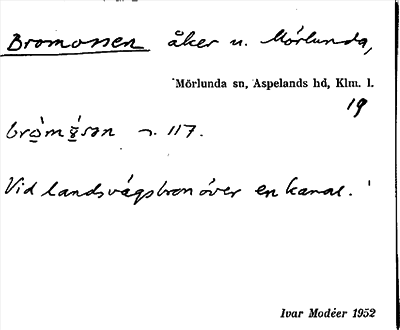 Bromossen åker u. Mörlunda,
Mörlunda sn, Aspelands hd, Klm. l.
19
117.
Vid landsvägsbron över en kanal.
Ivar Modéer 1952